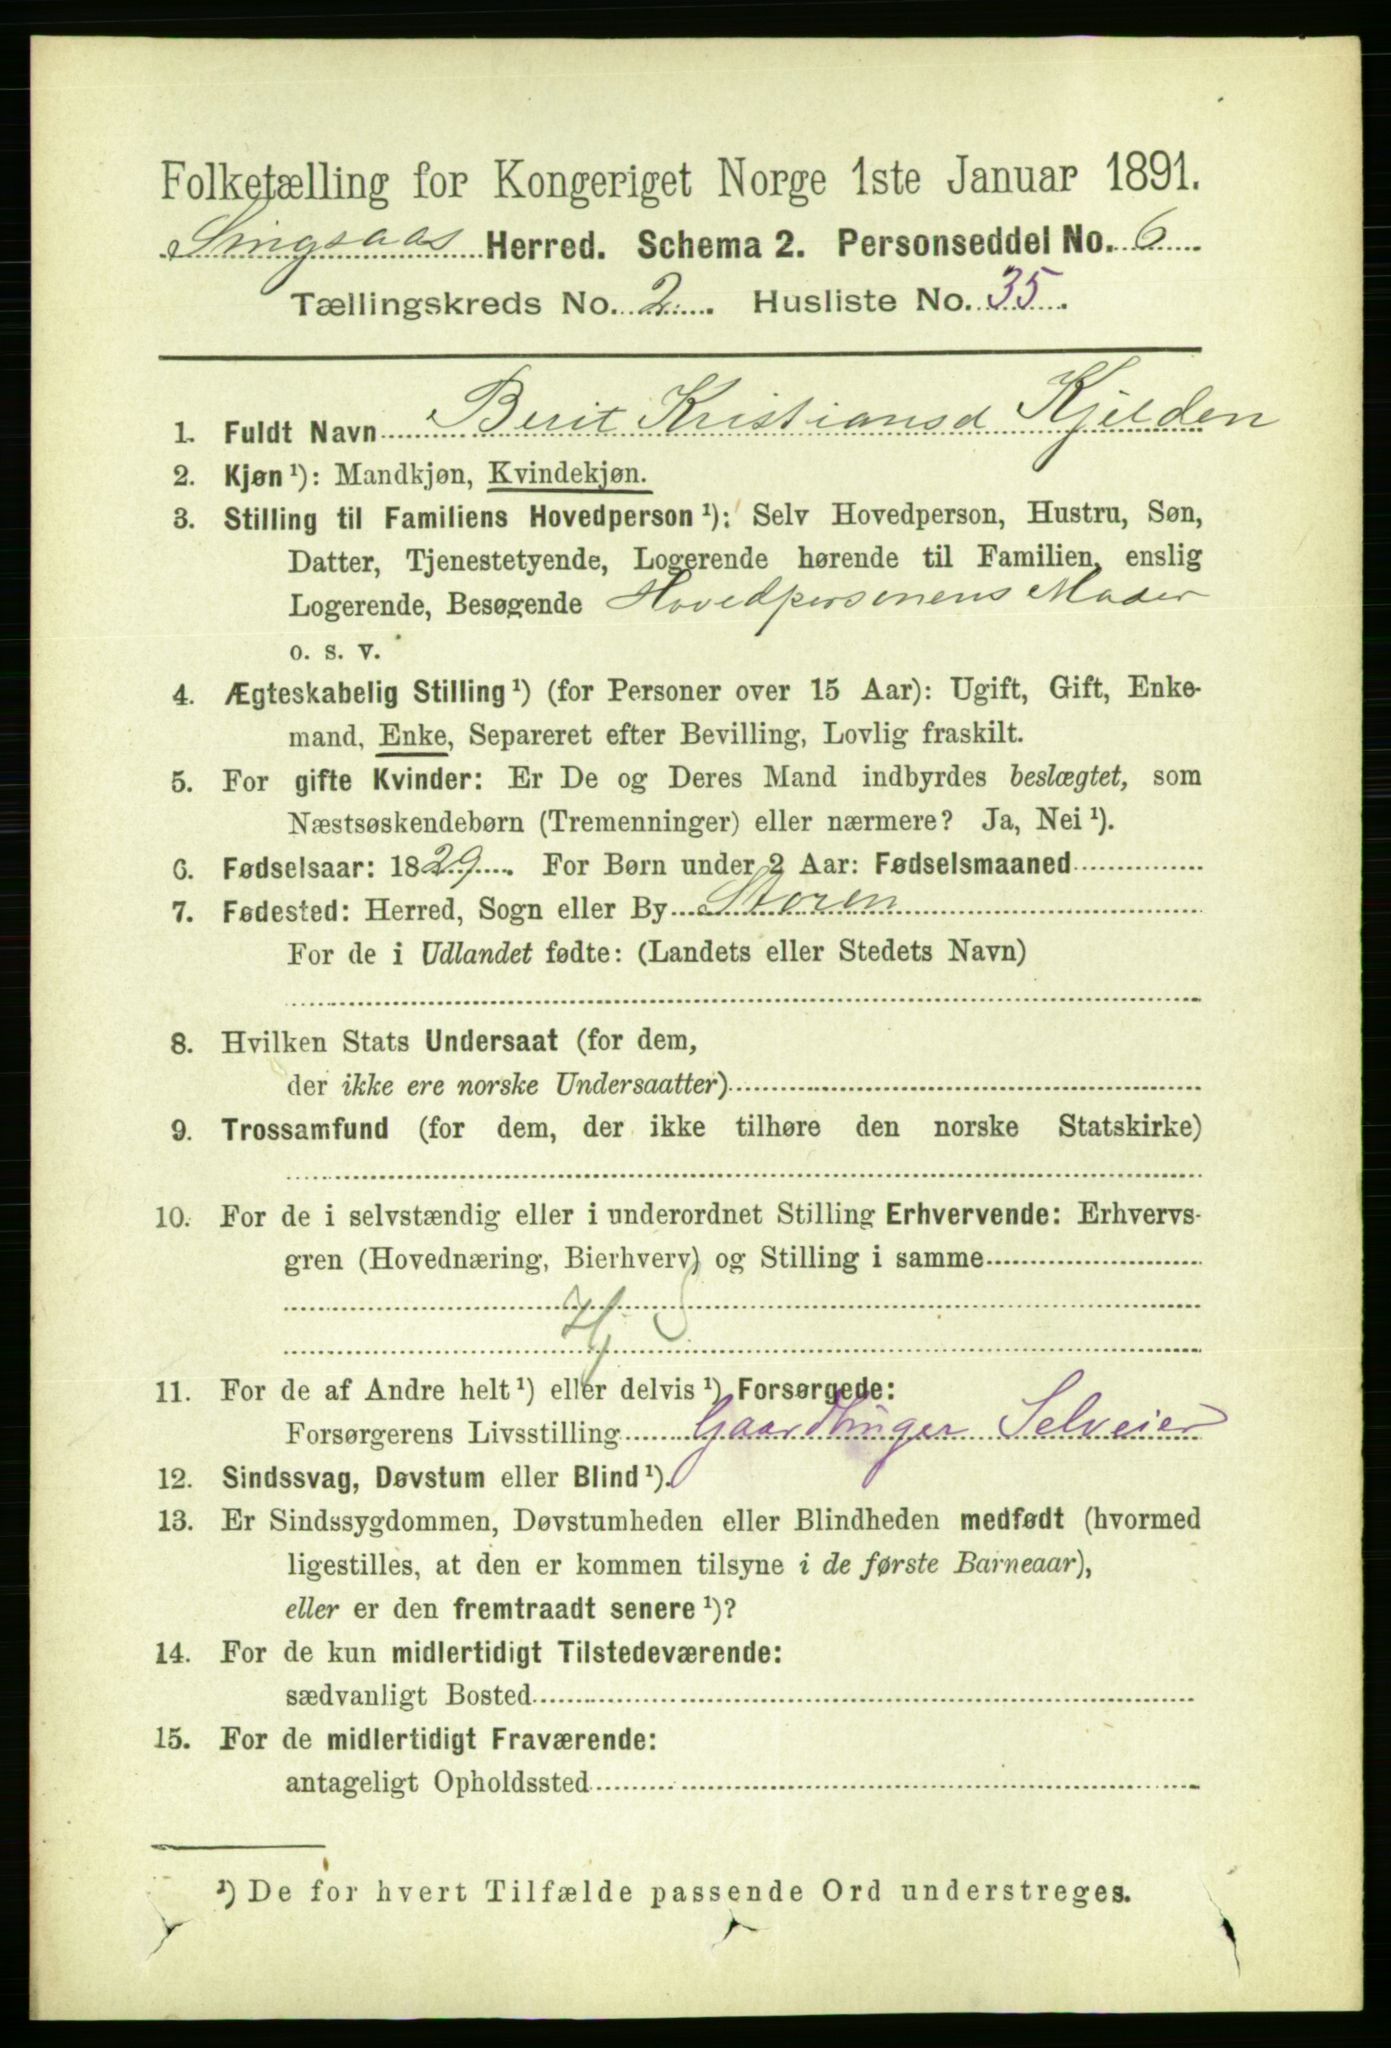 Folketælling for Kongeriget Norge 1ste Januar 1891.
Singsaas Herred. Schema 2. Personseddel No. 6
Tællingskreds No. 2. Husliste No. 35.
1. Fuldt Navn Berit Kristiansd Kjelden
2. Kjøn ¹): Mandkjøn, Kvindekjøn.
3. Stilling til Familiens Hovedperson ¹): Selv Hovedperson, Hustru, Søn,
Datter, Tjenestetyende, Logerende hørende til Familien, enslig
Logerende, Besøgende Hovedpersonens Moder
o. s. v.
4. Ægteskabelig Stilling ¹) (for Personer over 15 Aar): Ugift, Gift, Enke-
mand, Enke, Separeret efter Bevilling, Lovlig fraskilt.
5. For gifte Kvinder: Er De og Deres Mand indbyrdes beslægtet, som
Næstsøskendebørn (Tremenninger) eller nærmere? Ja, Nei ¹).
6. Fødselsaar: 1829. For Børn under 2 Aar: Fødselsmaaned
7. Fødested: Herred, Sogn eller By Støren
For de i Udlandet fødte: (Landets eller Stedets Navn)
8. Hvilken Stats Undersaat (for dem,
der ikke ere norske Undersaatter)
9. Trossamfund (for dem, der ikke tilhøre den norske Statskirke)
10. For de i selvstændig eller i underordnet Stilling Erhvervende: Erhvervs-
gren (Hovednæring, Bierhverv) og Stilling i samme
11. For de af Andre helt ¹) eller delvis ¹) Forsørgede:
Forsørgerens Livsstilling Gaardbruger Selveier
12. Sindssvag, Døvstum eller Blind ¹).
13. Er Sindssygdommen, Døvstumheden eller Blindheden medfødt (hvormed
ligestilles, at den er kommen tilsyne i de første Barneaar),
eller er den fremtraadt senere ¹)?
14. For de kun midlertidigt Tilstedeværende:
sædvanligt Bosted
15. For de midlertidigt Fraværende:
antageligt Opholdssted
¹) De for hvert Tilfælde passende Ord understreges.